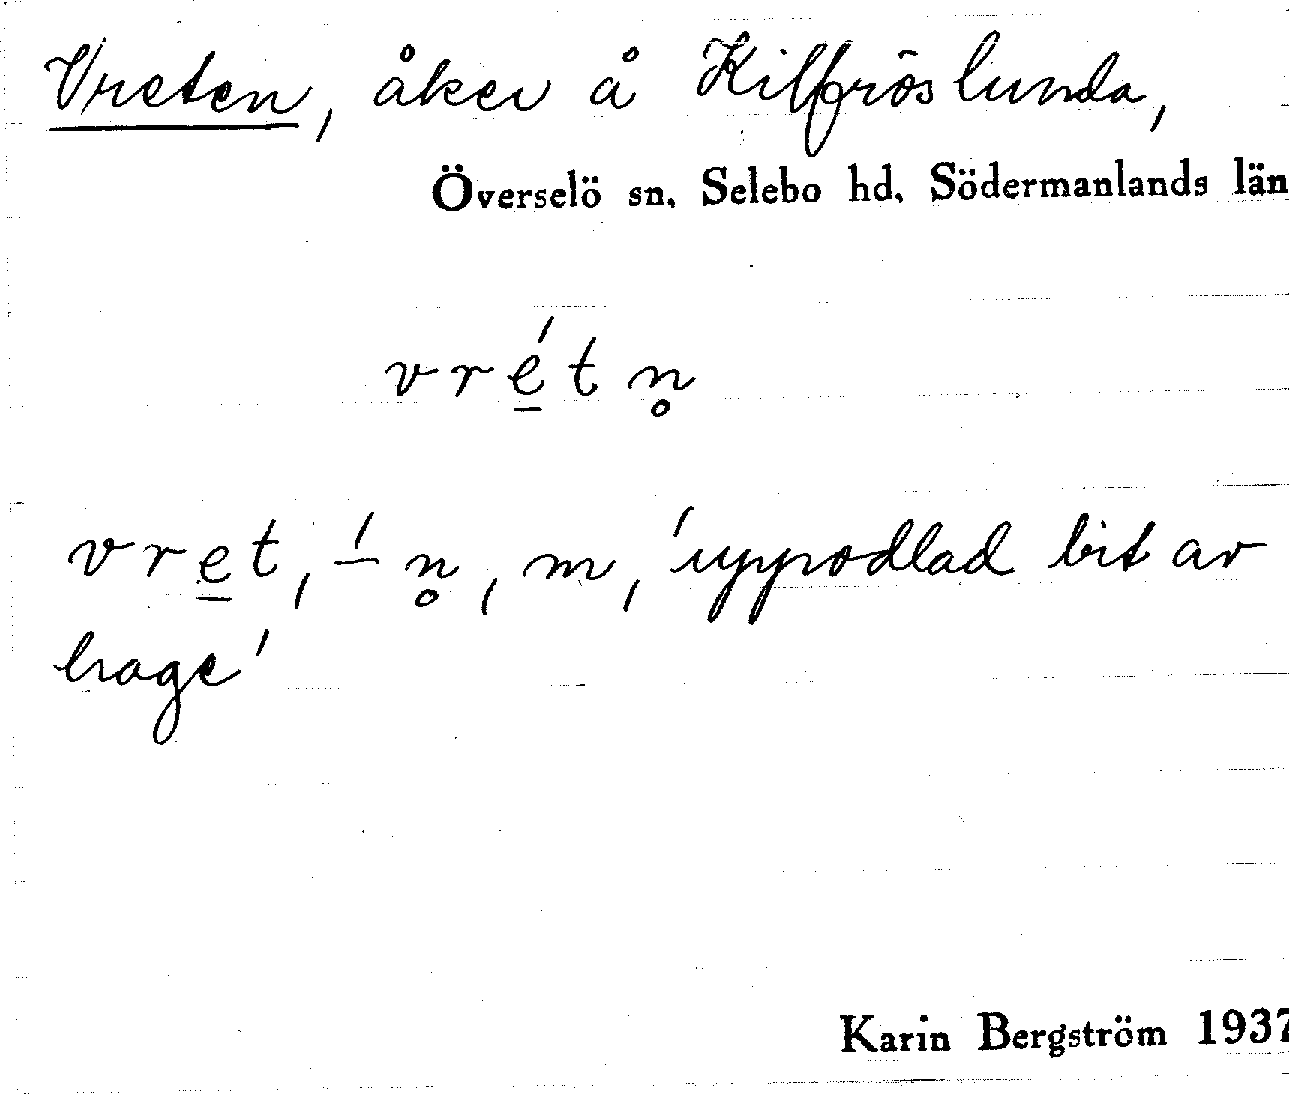 Vreten, åker å Kilfröslunda,
Överselö sn. Selebo hd. Södermanlands län
vré̲tn̥
vre̲t, –́n̥, m, 'uppodlad bit av
hage'
Karin Bergström 1937